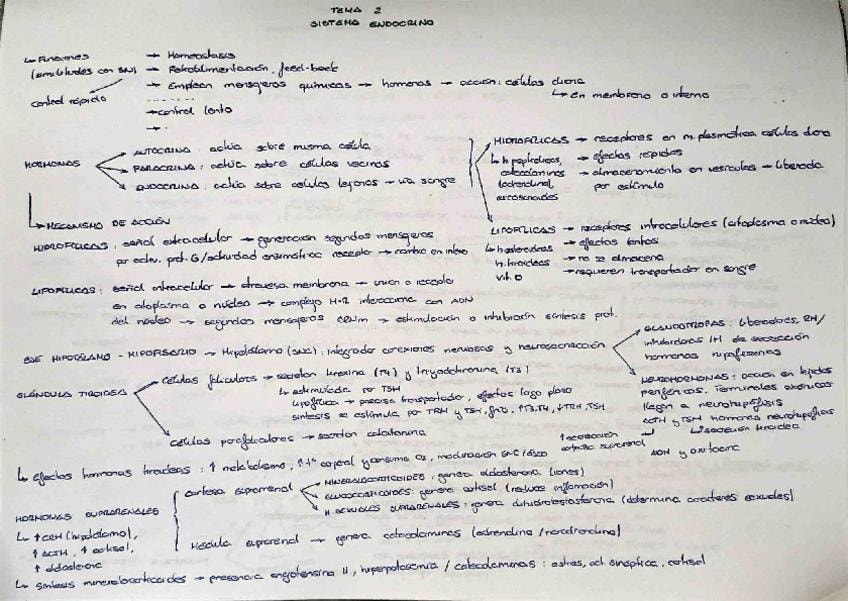 TEMA 2
SISTEMA ENDOCRINO
↳ Funciones → Homeostasis
(similitudes con SN) → Retroalimentación, feed-back
→ Emplean mensajeros químicos → hormonas → acción: células diana
↳ En membrana o interno
control rápido
→ control lento
HORMONAS
→ AUTOCRINA: actúa sobre misma célula
→ PARACRINA: actúa sobre células vecinas
→ ENDOCRINA: actúa sobre células lejanas → vía sangre
HIDROFÍLICAS → receptores en m. plasmática células diana
↳ h. peptídicas, → efectos rápidos
catecolaminas → almacenamiento en vesículas → liberada
(adrenalina), por estímulo
eicosanoides
LIPOFÍLICAS → receptores intracelulares (citoplasma o núcleo)
↳ h. esteroideas → efectos lentos
h. tiroideas → no se almacena
vit. D → requieren transportador en sangre
↳ MECANISMO DE ACCIÓN
HIDROFÍLICAS: señal extracelular → generación segundos mensajeros
por activ. prot. G / actividad enzimática receptor → cambio en interior
LIPOFÍLICAS: señal intracelular → atraviesa membrana → unen a receptor
en citoplasma o núcleo → complejo H-R interacciona con ADN
del núcleo → segundos mensajeros → estimulación o inhibición síntesis prot.
EJE HIPOTÁLAMO - HIPOFISARIO → Hipotálamo (SNC), integrador conexiones nerviosas y neurosecreción
GLANDOTROPAS: liberadoras, RH/
inhibidoras IH de secreción
hormonas hipofisarias
NEUROHORMONAS: acción en tejidos
periféricos. Terminales axónicos
llegan a neurohipófisis
ACTH y TSH hormonas neurohipófisis
↳ secreción tiroidea
↑ secreción
corteza suprarrenal
ADH y oxitocina
GLÁNDULA TIROIDEA
→ Células foliculares → secretan tiroxina (T4) y triyodotironina (T3)
↳ estimulada por TSH
Lipofílica → precisa transportador, efectos largo plazo
síntesis se estimula por TRH y TSH, frío, ↑T3, T4, ↓TRH, TSH
Células parafoliculares → secretan calcitonina
↳ Efectos hormonas tiroideas: ↑ metabolismo, ↑ Tª corporal y consumo O2, maduración SNC
HORMONAS SUPRARRENALES
Corteza suprarrenal
→ MINERALOCORTICOIDES: genera aldosterona (iones)
→ GLUCOCORTICOIDES: genera cortisol (reduce inflamación)
→ H. SEXUALES SUPRARRENALES: genera dihidrotestosterona (determina caracteres sexuales)
↳ ↑ CRH (hipotálamo),
↑ ACTH, ↑ cortisol,
↑ aldosterona
Médula suprarrenal → genera catecolaminas (adrenalina / noradrenalina)
↳ Síntesis mineralocorticoides → presencia angiotensina II, hiperpotasemia / catecolaminas: estrés, act. simpática, cortisol